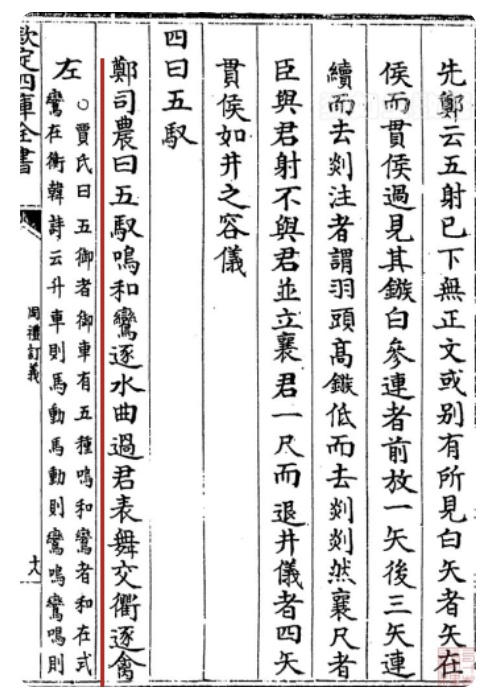 先鄭云五射已下無正文或别有所見白矢者矢在
侯而貫侯過見其鏃白參連者前放一矢後三矢連
續而去剡注者謂羽頭髙鏃低而去剡剡然襄尺者
臣與君射不與君並立襄君一尺而退井儀者四矢
貫侯如井之容儀
四曰五馭
鄭司農曰五馭鳴和鸞逐水曲過君表舞交衢逐禽
左
○賈氏曰五御者御車有五種鳴和鸞者和在式
鸞在衡韓詩云升車則馬動馬動則鸞鳴鸞鳴則
欽定四庫全書
周禮訂義
十八